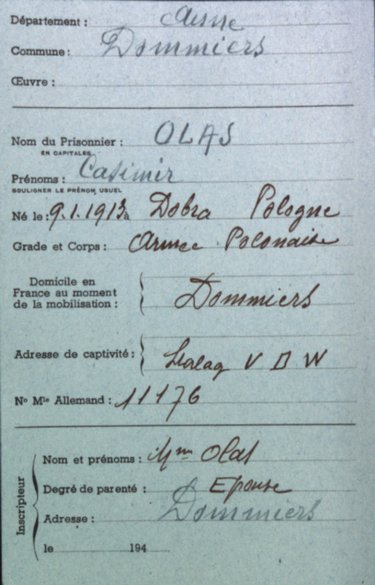 Département : Aisne
Commune : Dommiers
Œuvre :
Nom du Prisonnier : OLAS
EN CAPITALES
Prénoms : Casimir
SOULIGNER LE PRÉNOM USUEL
Né le : 9.1.1913 à Dobra Pologne
Grade et Corps : Armée Polonaise
Domicile en
France au moment
de la mobilisation : Dommiers
Adresse de captivité : Stalag V B W
Nº Mle Allemand : 11176
Inscripteur
Nom et prénoms : Mme Olas
Degré de parenté : Epouse
Adresse : Dommiers
le 194